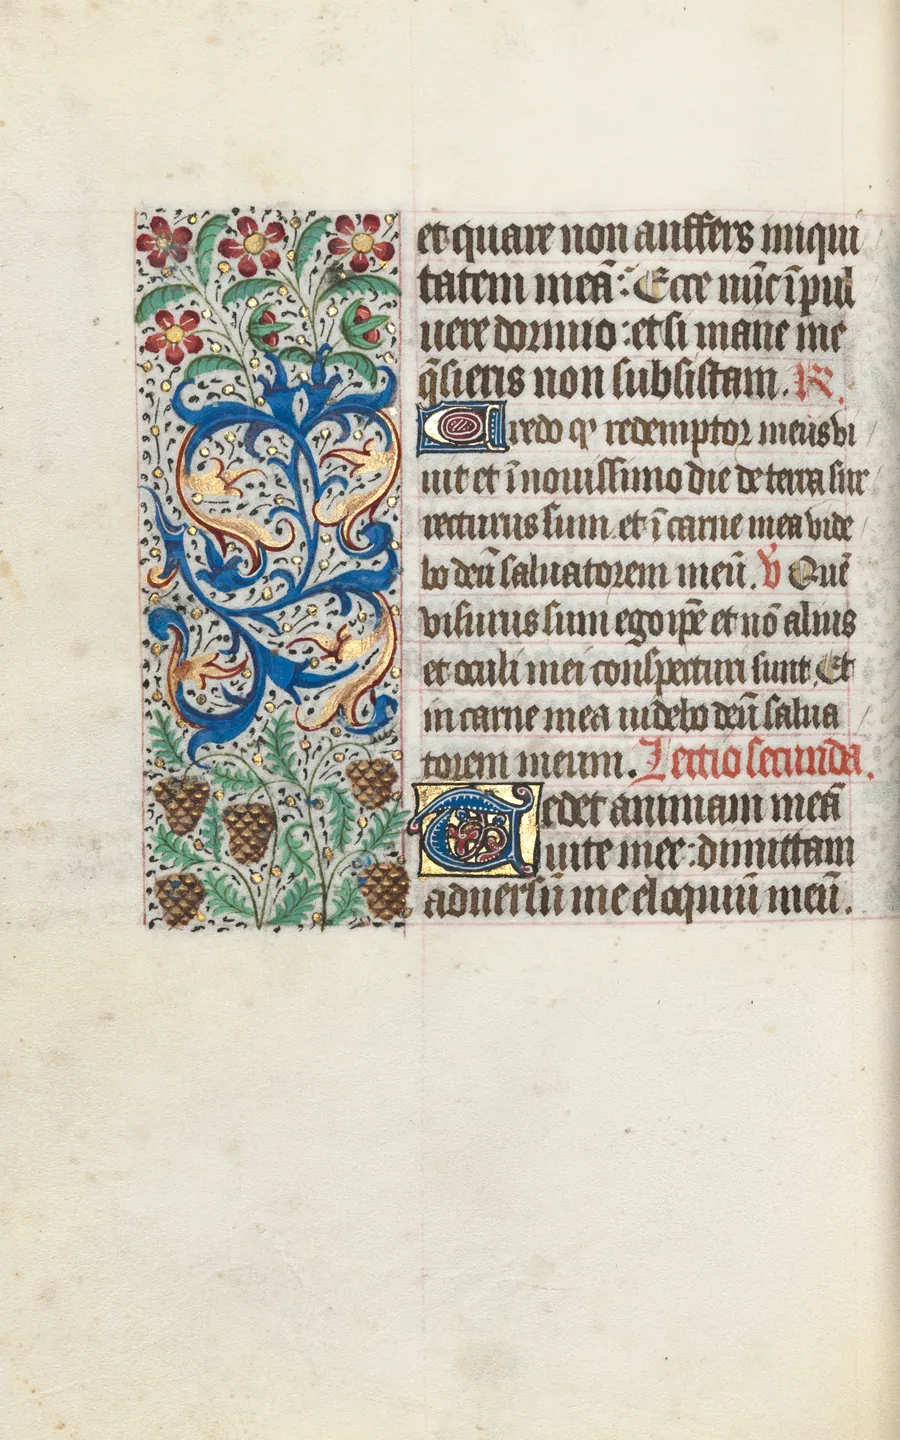 et quare non auffers iniqui
tatem meā: Ecce nūc ī pul
uere dormio: et si mane me
q̄sieris non subsistam. R̸.
Credo qꝫ redemptor meus vi
uit et ī nouissimo die de terra sur
recturus sum. et ī carne mea vide
bo deū saluatorem meū. v̄ Quē
visurus sum ego ip̄e et nō alius
et oculi mei conspecturi sunt. Et
in carne mea uidebo deū salua
torem meum. Lectio secunda.
Tedet animam meā
uite mee: dimittam
aduersū me eloquiū meū.